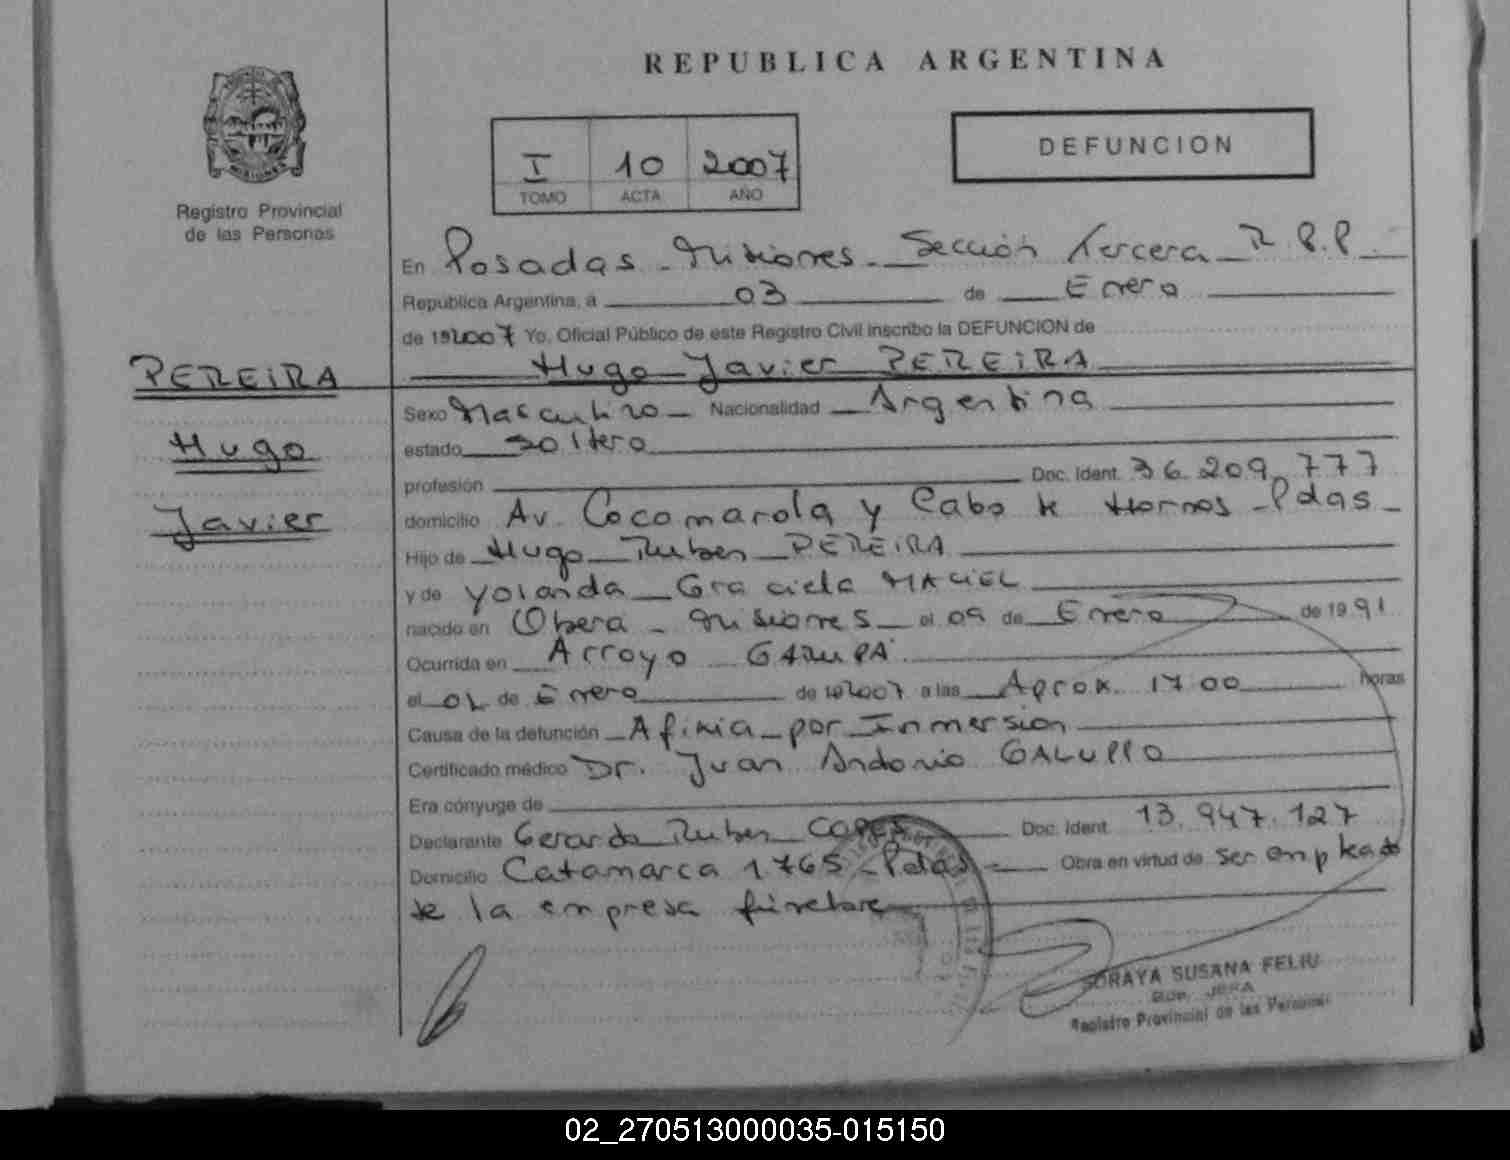 REPUBLICA ARGENTINA
DEFUNCION
I 10 2007
TOMO ACTA AÑO
MISIONES
Registro Provincial
de las Personas
En Posadas - Misiones - Sección Tercera R.P.P.
República Argentina, a 03 de Enero
de 192007 Yo, Oficial Público de este Registro Civil inscribo la DEFUNCION de
Hugo Javier PEREIRA
PEREIRA
Hugo
Javier
Sexo Masculino - Nacionalidad Argentina
estado soltero
profesión Doc. Ident. 36.209.777
domicilio Av. Cocomarola y Cabo de Hornos - Pdas -
Hijo de Hugo Ruben PEREIRA
y de Yolanda Graciela MACIEL
nacido en Obera - Misiones - el 09 de Enero de 1991
Ocurrida en Arroyo GARUPA
el de Enero de 192007 a las Aprox. 17 00 horas
Causa de la defunción Afixia por Inmersion
Certificado médico Dr. Juan Antonio GALUPPO
Era cónyuge de
Declarante Gerardo Ruben Doc. Ident. 13.947.127
Domicilio Catamarca 1765 - Pdas - Obra en virtud de ser empleado
de la empresa fúnebre
SORAYA SUSANA FELIU
Registro Provincial de las Personas
02_270513000035-015150